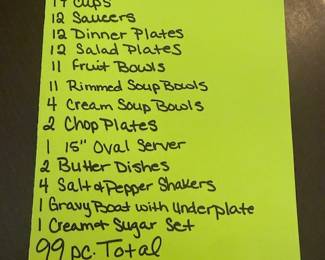 14 Cups
12 Saucers
12 Dinner Plates
12 Salad Plates
11 Fruit Bowls
11 Rimmed Soup Bowls
4 Cream Soup Bowls
2 Chop Plates
1 15" Oval Server
2 Butter Dishes
4 Salt & Pepper Shakers
1 Gravy Boat with Underplate
1 Cream & Sugar Set
99 pc. Total